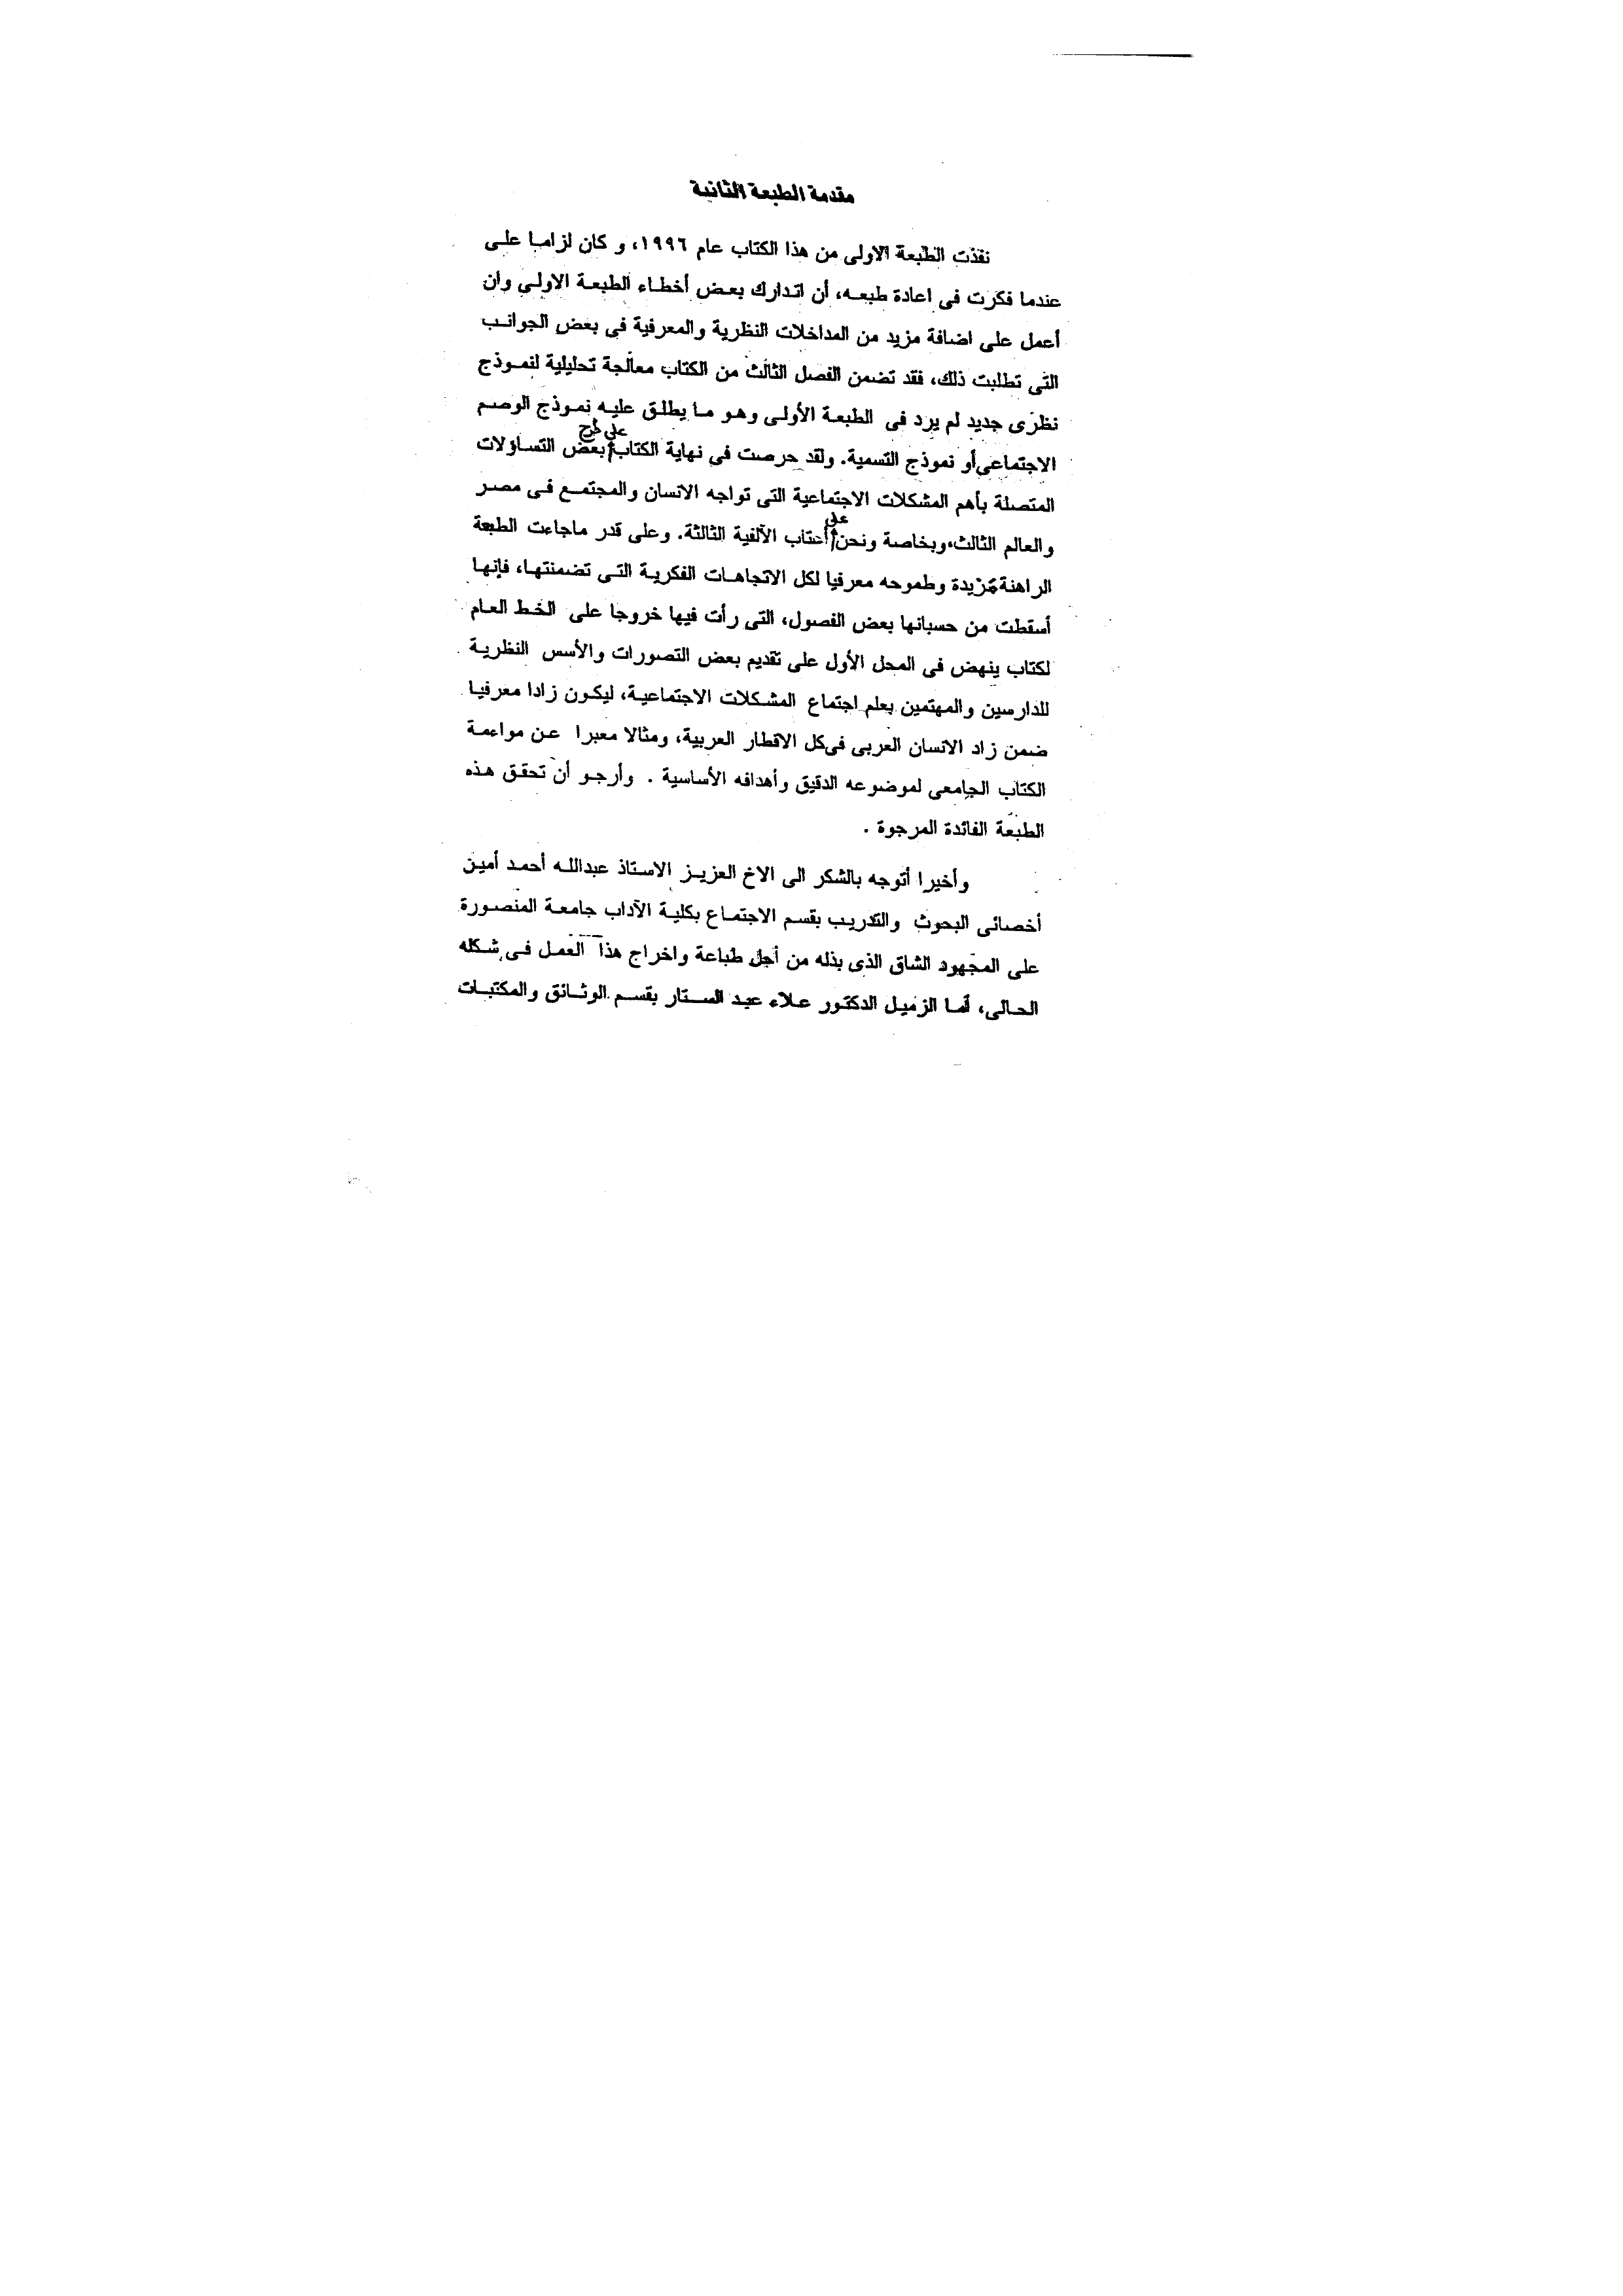 مقدمة الطبعة الثانية
نفذت الطبعة الاولى من هذا الكتاب عام ١٩٩٦، و كان لزاما على
عندما فكرت فى اعادة طبعه، أن اتدارك بعض أخطاء الطبعة الاولى وان
أعمل على اضافة مزيد من المداخلات النظرية والمعرفية فى بعض الجوانب
التى تطلبت ذلك، فقد تضمن الفصل الثالث من الكتاب معالجة تحليلية لنموذج
نظرى جديد لم يرد فى الطبعة الأولى وهو ما يطلق عليه نموذج الوصم
الاجتماعى أو نموذج التسمية. ولقد حرصت فى نهاية الكتاب على طرح بعض التساؤلات
المتصلة بأهم المشكلات الاجتماعية التى تواجه الانسان والمجتمع فى مصر
والعالم الثالث، وبخاصة ونحن على أعتاب الآلفية الثالثة. وعلى قدر ماجاءت الطبعة
الراهنة مزيدة وطموحه معرفيا لكل الاتجاهات الفكرية التى تضمنتها، فإنها
أسقطت من حسبانها بعض الفصول، التى رأت فيها خروجا على الخط العام
لكتاب ينهض فى المحل الأول على تقديم بعض التصورات والأسس النظرية
للدارسين والمهتمين بعلم اجتماع المشكلات الاجتماعية، ليكون زادا معرفيا
ضمن زاد الانسان العربى فى كل الاقطار العربية، ومثالا معبرا عن مواءمة
الكتاب الجامعى لموضوعه الدقيق وأهدافه الأساسية . وأرجو أن تحقق هذه
الطبعة الفائدة المرجوة .
وأخيرا أتوجه بالشكر الى الاخ العزيز الاستاذ عبدالله أحمد أمين
أخصائى البحوث والتدريب بقسم الاجتماع بكلية الآداب جامعة المنصورة
على المجهود الشاق الذى بذله من أجل طباعة واخراج هذا العمل فى شكله
الحالى، أما الزميل الدكتور علاء عبد الستار بقسم الوثائق والمكتبات